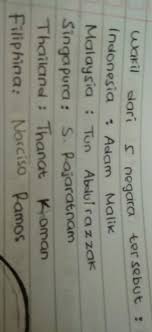 Wakil dari 5 negara tersebut :
Indonesia : Adam Malik
Malaysia : Tun Abdul razzak
Singapura : S. Rajaratnam
Thailand : Thanat Koman
Filiphina : Narciso Ramos